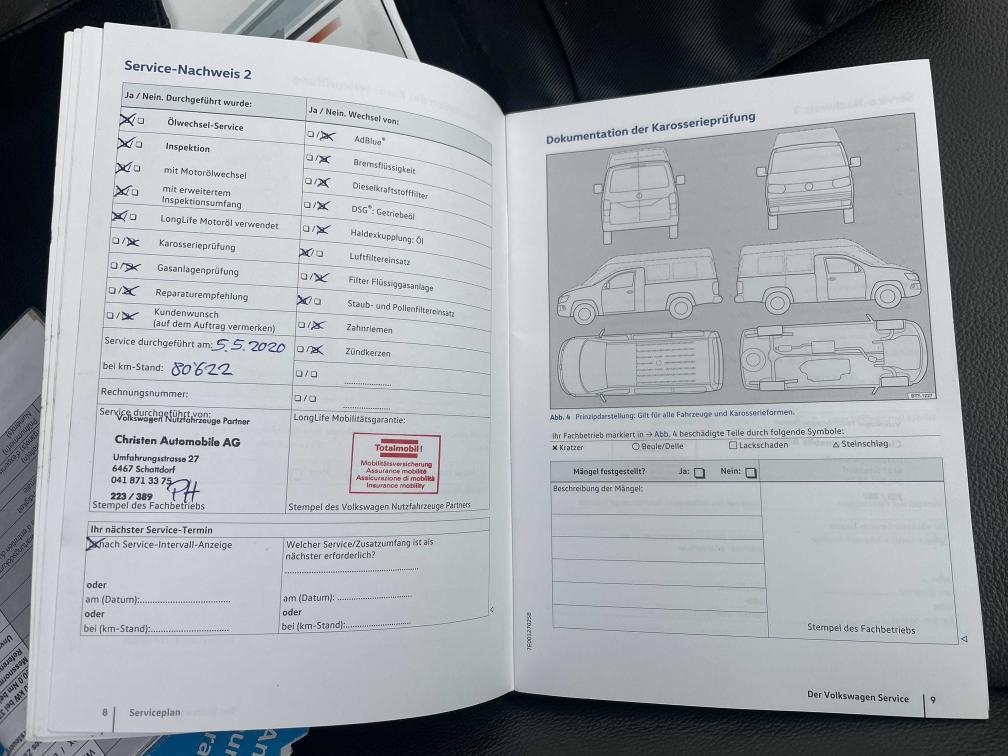 Service-Nachweis 2
Ja / Nein. Durchgeführt wurde:
Ölwechsel-Service
Inspektion
mit Motorölwechsel
mit erweitertem
Inspektionsumfang
LongLife Motoröl verwendet
Karosserieprüfung
Gasanlagenprüfung
Reparaturempfehlung
Kundenwunsch
(auf dem Auftrag vermerken)
Service durchgeführt am: 5.5.2020
bei km-Stand: 80622
Rechnungsnummer:
Ja / Nein. Wechsel von:
AdBlue®
Bremsflüssigkeit
Dieselkraftstofffilter
DSG®: Getriebeöl
Haldexkupplung: Öl
Luftfiltereinsatz
Filter Flüssiggasanlage
Staub- und Pollenfiltereinsatz
Zahnriemen
Zündkerzen
Service durchgeführt von:
Volkswagen Nutzfahrzeuge Partner
Christen Automobile AG
Umfahrungsstrasse 27
6467 Schattdorf
041 871 33 75
223 / 389 PH
Stempel des Fachbetriebs
LongLife Mobilitätsgarantie:
Totalmobil!
Mobilitätsversicherung
Assurance mobilité
Assicurazione di mobilità
Insurance mobility
Stempel des Volkswagen Nutzfahrzeuge Partners
Ihr nächster Service-Termin
nach Service-Intervall-Anzeige
oder
am (Datum):
oder
bei (km-Stand):
Welcher Service/Zusatzumfang ist als
nächster erforderlich?
am (Datum):
oder
bei (km-Stand):
8 Serviceplan
Dokumentation der Karosserieprüfung
BTT-1227
Abb. 4 Prinzipdarstellung: Gilt für alle Fahrzeuge und Karosserieformen.
Ihr Fachbetrieb markiert in → Abb. 4 beschädigte Teile durch folgende Symbole:
× Kratzer ○ Beule/Delle □ Lackschaden △ Steinschlag
Mängel festgestellt? Ja: □ Nein: □
Beschreibung der Mängel:
Stempel des Fachbetriebs
7E0012702SB
Der Volkswagen Service 9